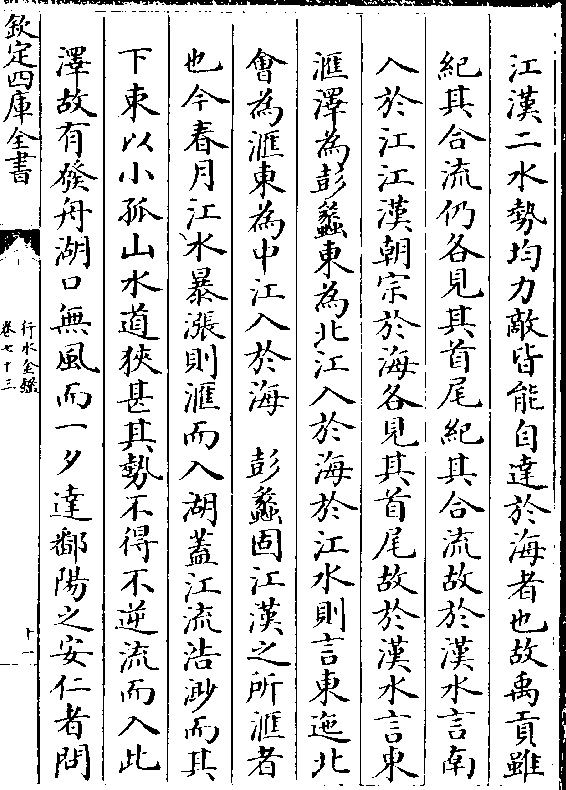 江漢二水勢均力敵皆能自達於海者也故禹貢雖
紀其合流仍各見其首尾紀其合流故於漢水言南
入於江江漢朝宗於海各見其首尾故於漢水言東
滙澤為彭蠡東為北江入於海於江水則言東迤北
會為滙東為中江入於海　彭蠡固江漢之所滙者
也今春月江水暴漲則滙而入湖蓋江流浩渺而其
下東以小孤山水道狹甚其勢不得不逆流而入此
澤故有發舟湖口無風而一夕達鄱陽之安仁者問
欽定四庫全書
行水金鑑
卷七十三